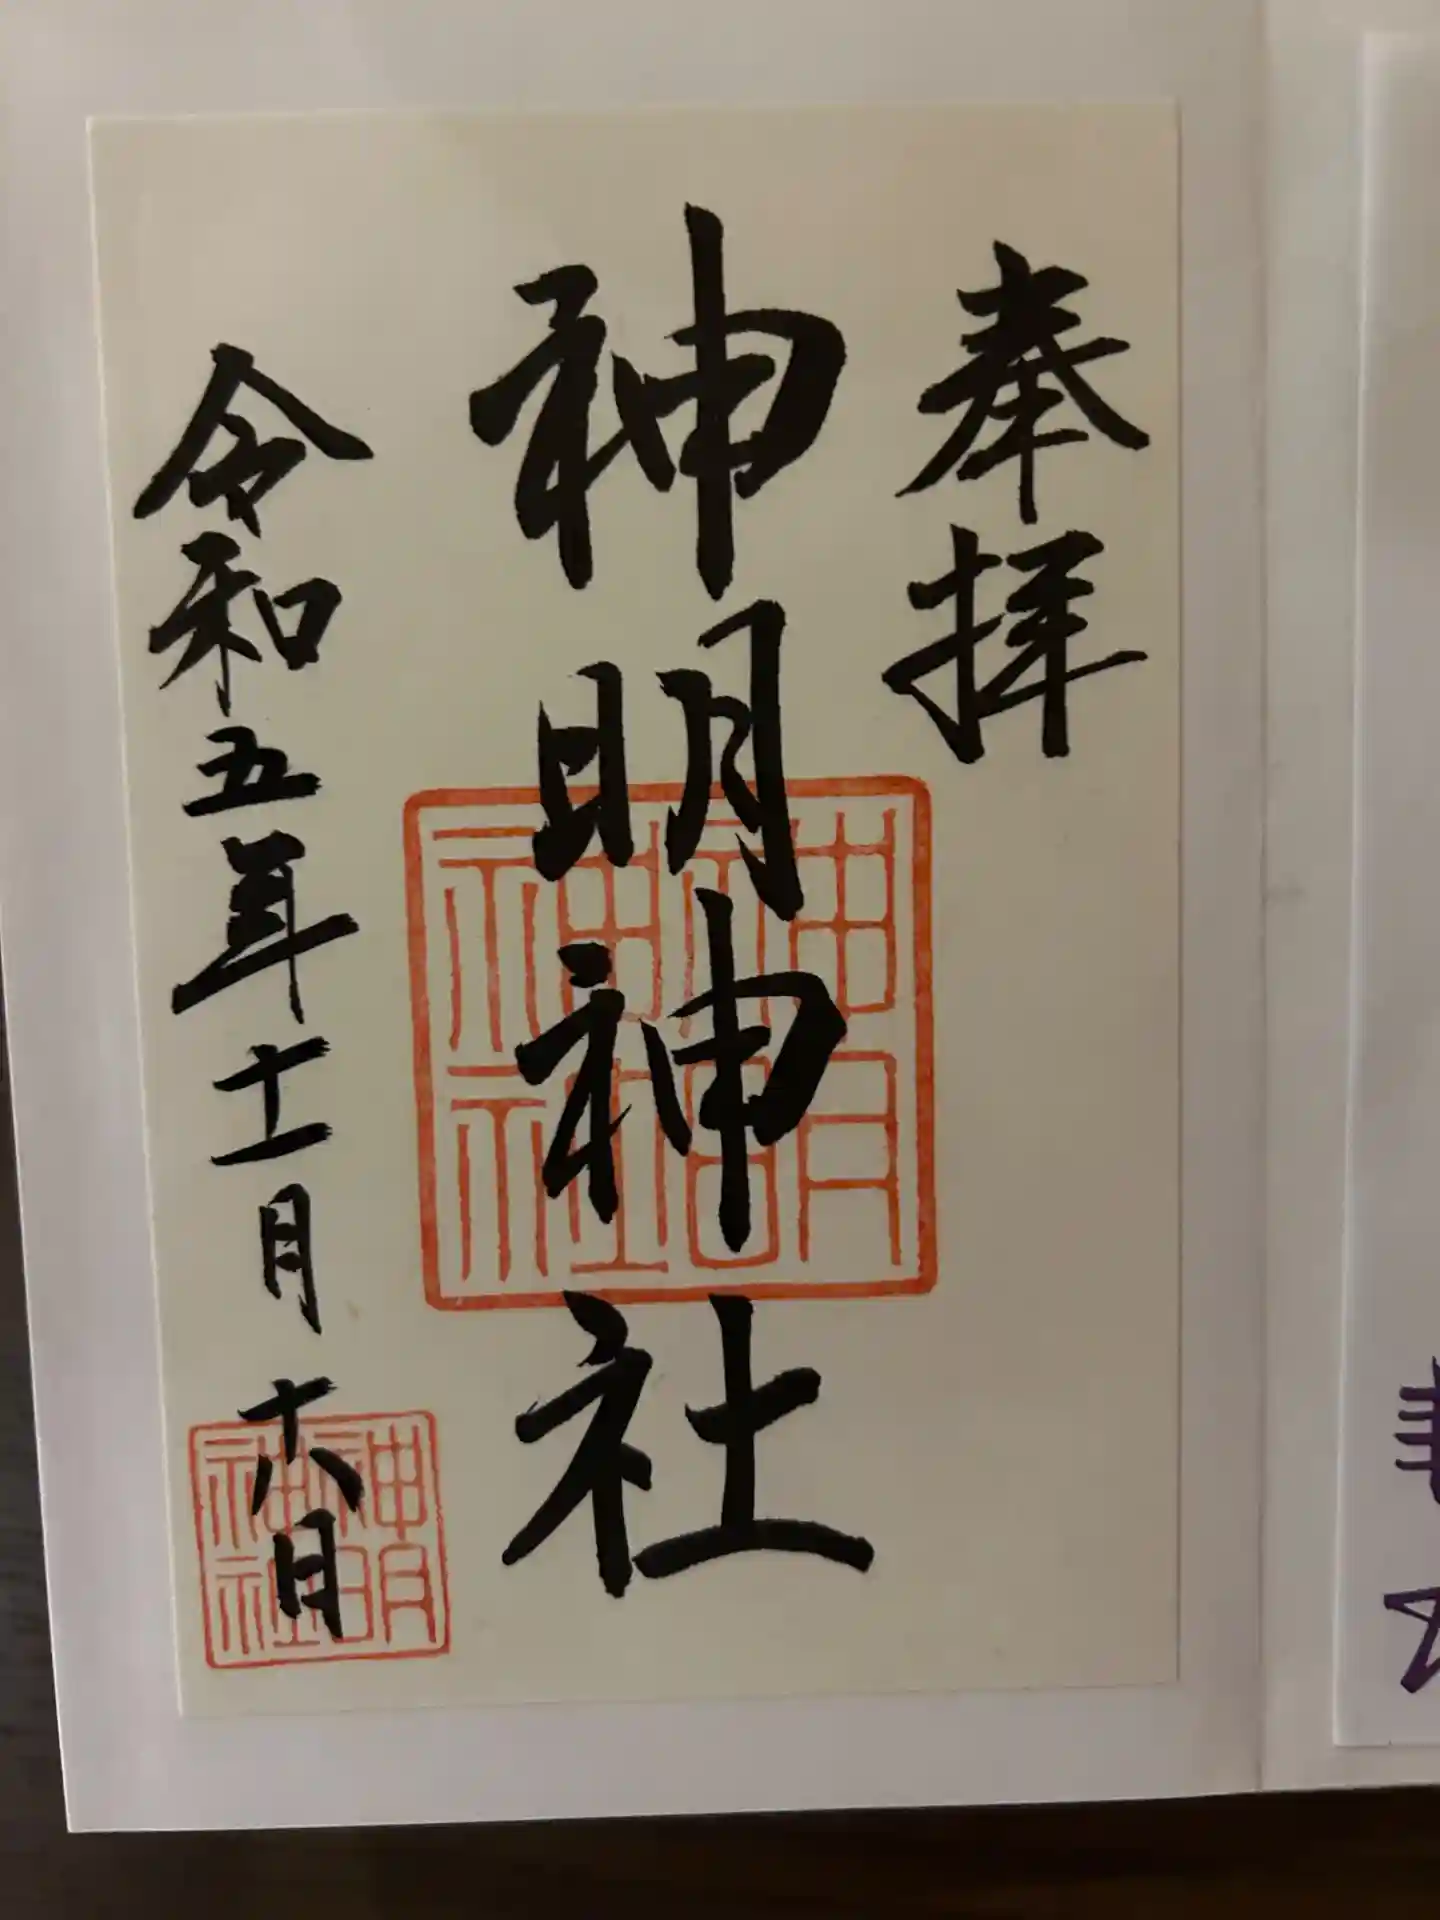 奉拝
神明神社
令和五年十一月十八日
神明
神社
神明
神社